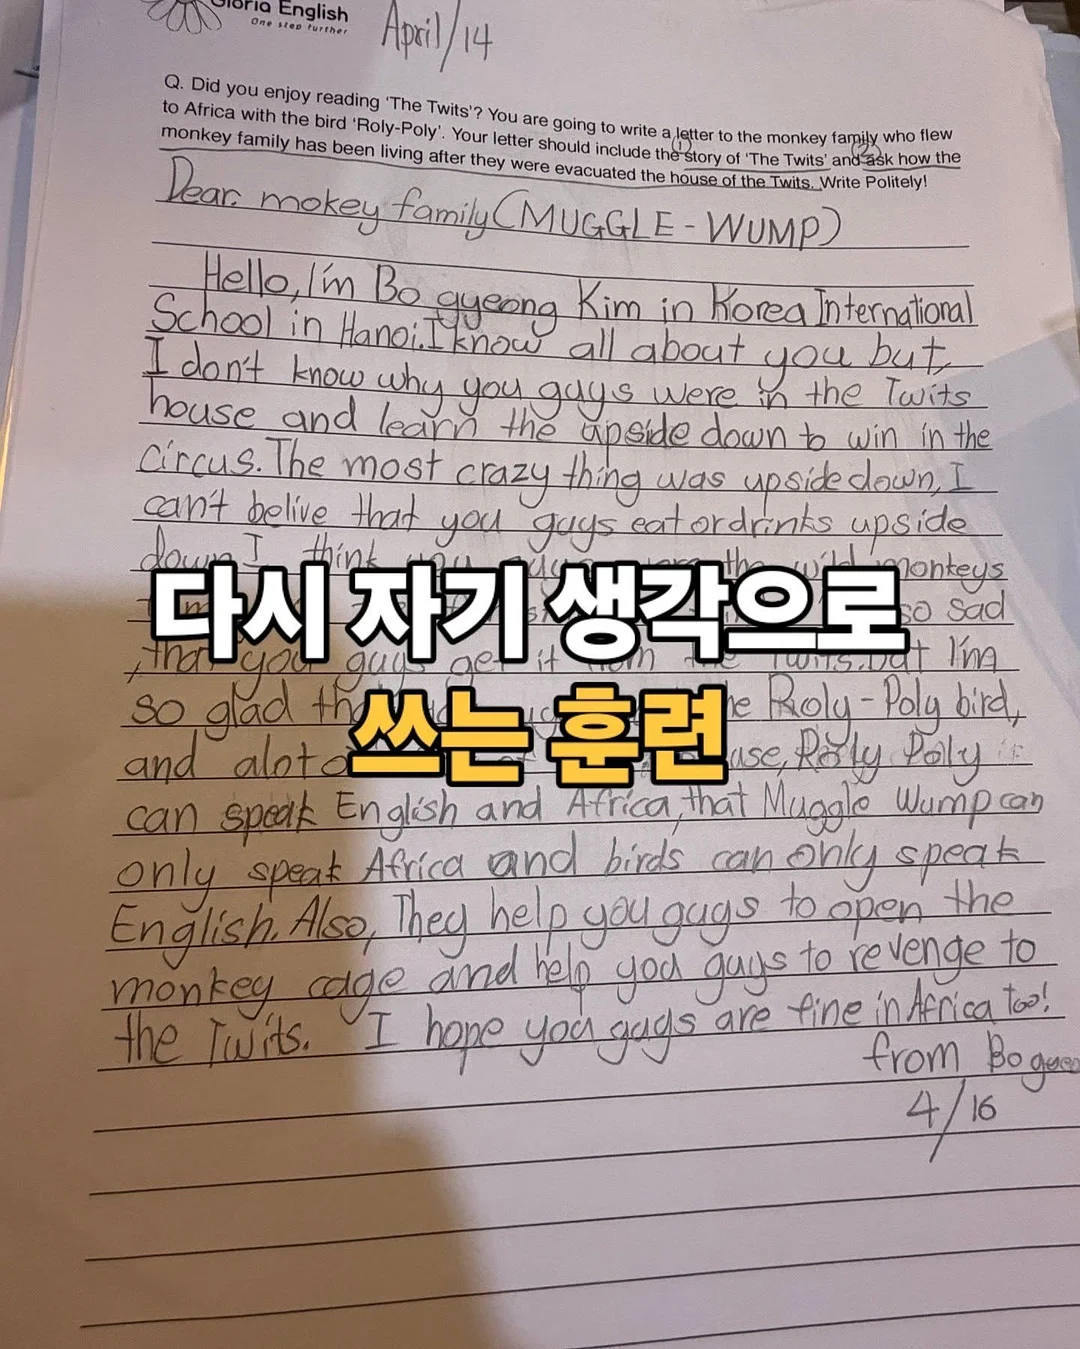 Gloria English
One step further
April/14
Q. Did you enjoy reading 'The Twits'? You are going to write a letter to the monkey family who flew
to Africa with the bird 'Roly-Poly'. Your letter should include the story of 'The Twits' and ask how the
monkey family has been living after they were evacuated the house of the Twits. Write Politely!
Dear. mokey family(MUGGLE-WUMP)
Hello, I'm Bo gyeong Kim in Korea International
School in Hanoi. I know all about you but,
I don't know why you guys were in the Twits
house and learn the upside down to win in the
circus. The most crazy thing was upside down, I
can't belive that you guys eat or drinks upside
down I think the wild monkeys
다시 자기 생각으로
so sad
, that you guys get it from the Twits. but I'm
쓰는 훈련
so glad the Roly-Poly bird,
and alot Roly Poly
can speak English and Africa, that Muggle Wump can
only speak Africa and birds can only speak
English. Also, They help you guys to open the
monkey cage and help you guys to revenge to
the Twits. I hope you guys are fine in Africa too!
from Bo gyeo
4/16